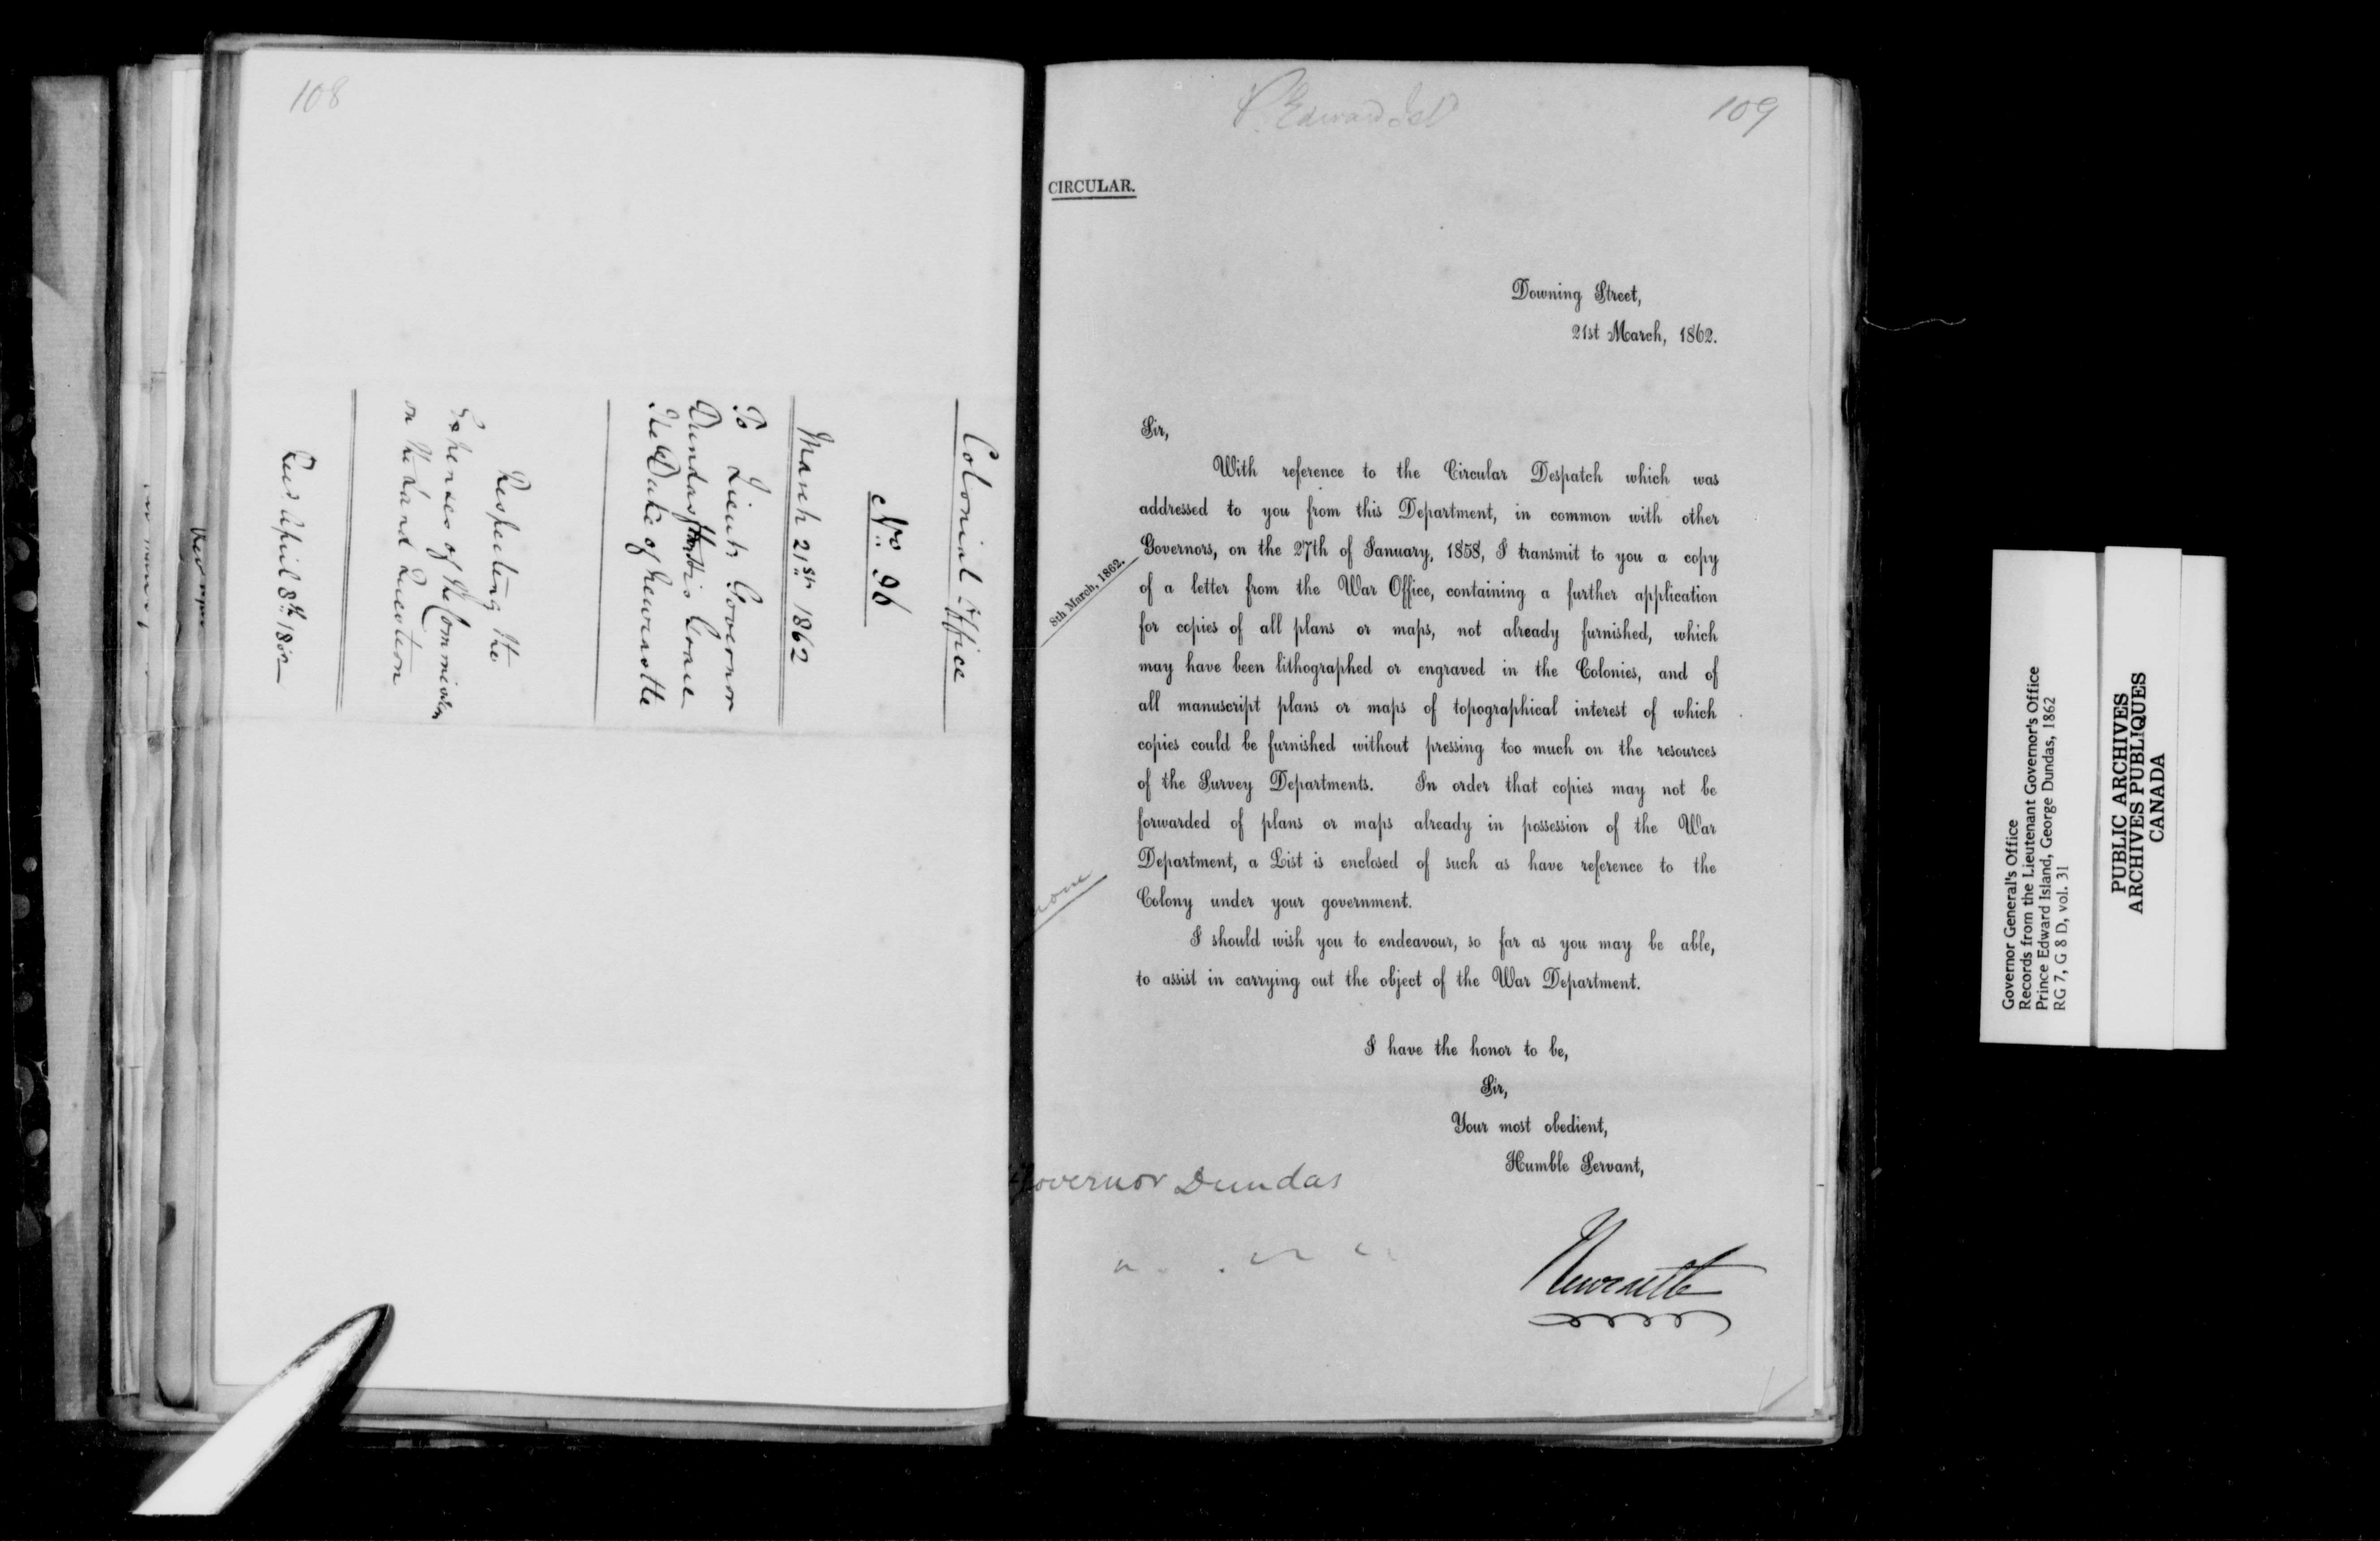 108
Colonial Office
No 96
March 21st 1862
To Lieut. Governor
Dundas from His Grace
The Duke of Newcastle
Respecting the
Expenses of the Commission
on the Land Question
Recd. April 8th 186
P. Edward Isld
109
CIRCULAR.
Downing Street,
21st March, 1862.
Sir,
With reference to the Circular Despatch which was
addressed to you from this Department, in common with other
Governors, on the 27th of January, 1858, I transmit to you a copy
8th March, 1862.
of a letter from the War Office, containing a further application
for copies of all plans or maps, not already furnished, which
may have been lithographed or engraved in the Colonies, and of
all manuscript plans or maps of topographical interest of which
copies could be furnished without pressing too much on the resources
of the Survey Departments. In order that copies may not be
forwarded of plans or maps already in possession of the War
Department, a List is enclosed of such as have reference to the
none
Colony under your government.
I should wish you to endeavour, so far as you may be able,
to assist in carrying out the object of the War Department.
I have the honor to be,
Sir,
Your most obedient,
Humble Servant,
Governor Dundas
Newcastle
Governor General's Office
Records from the Lieutenant Governor's Office
Prince Edward Island, George Dundas, 1862
RG 7, G 8 D, vol. 31
PUBLIC ARCHIVES
ARCHIVES PUBLIQUES
CANADA